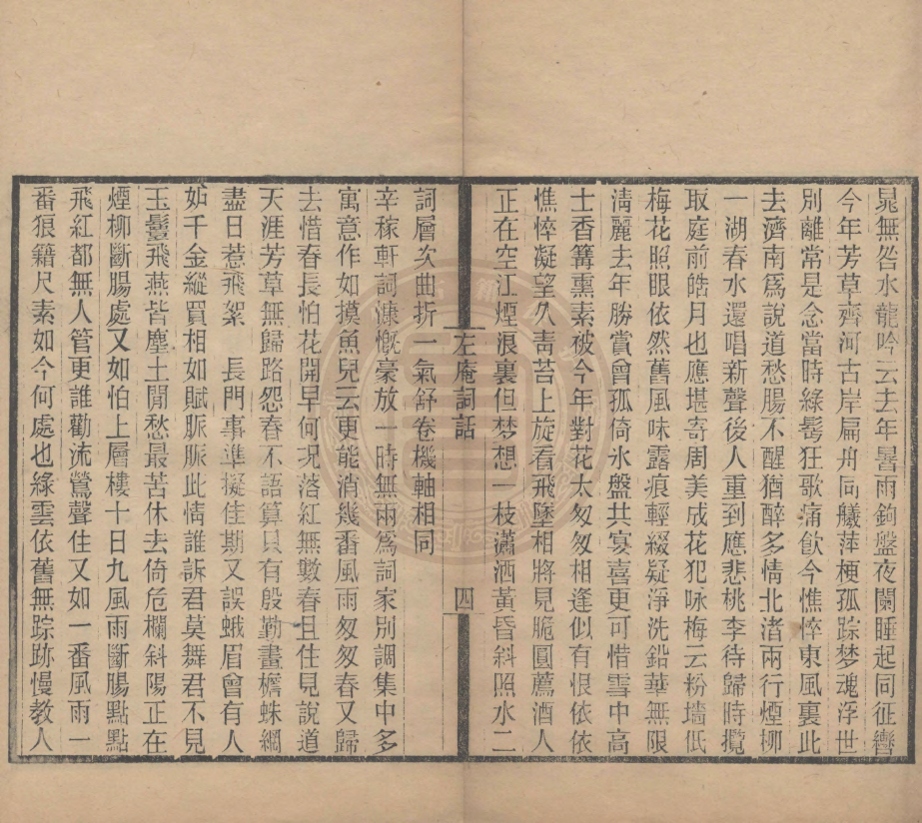 晁無咎水龍吟云去年暑雨鉤盤夜闌睡起同征轡
今年芳草齊河古岸扁舟同艤萍梗孤踪梦魂浮世
別離常是念當時綠髩狂歌痛飲今憔悴東風裏此
去濟南爲說道愁腸不醒猶醉多情北渚兩行煙柳
一湖春水還唱新聲後人重到應悲桃李待歸時攬
取庭前皓月也應堪寄周美成花犯咏梅云粉墻低
梅花照眼依然舊風味露痕輕綴疑淨洗鉛華無限
淸麗去年勝賞曾孤倚氷盤共宴喜更可惜雪中高
士香篝熏素被今年對花太匆匆相逢似有恨依依
憔悴凝望久靑苔上旋看飛墜相將見脆圓薦酒人
正在空江煙浪裏但梦想一枝瀟洒黃昏斜照水二
左庵詞話
四
詞層次曲折一氣舒卷機軸相同
辛稼軒詞慷慨豪放一時無兩爲詞家別調集中多
寓意作如摸魚兒云更能消幾番風雨匆匆春又歸
去惜春長怕花開早何况落紅無數春且住見說道
天涯芳草無歸路怨春不語算只有殷勤畫檐蛛網
盡日惹飛絮　長門事準擬佳期又誤蛾眉曾有人
妒千金縱買相如賦脈脈此情誰訴君莫舞君不見
玉鬟飛燕皆塵土閒愁最苦休去倚危欄斜陽正在
煙柳斷腸處又如怕上層樓十日九風雨斷腸點點
飛紅都無人管更誰勸流鶯聲住又如一番風雨一
番狼籍尺素如今何處也綠雲依舊無踪跡慢教人